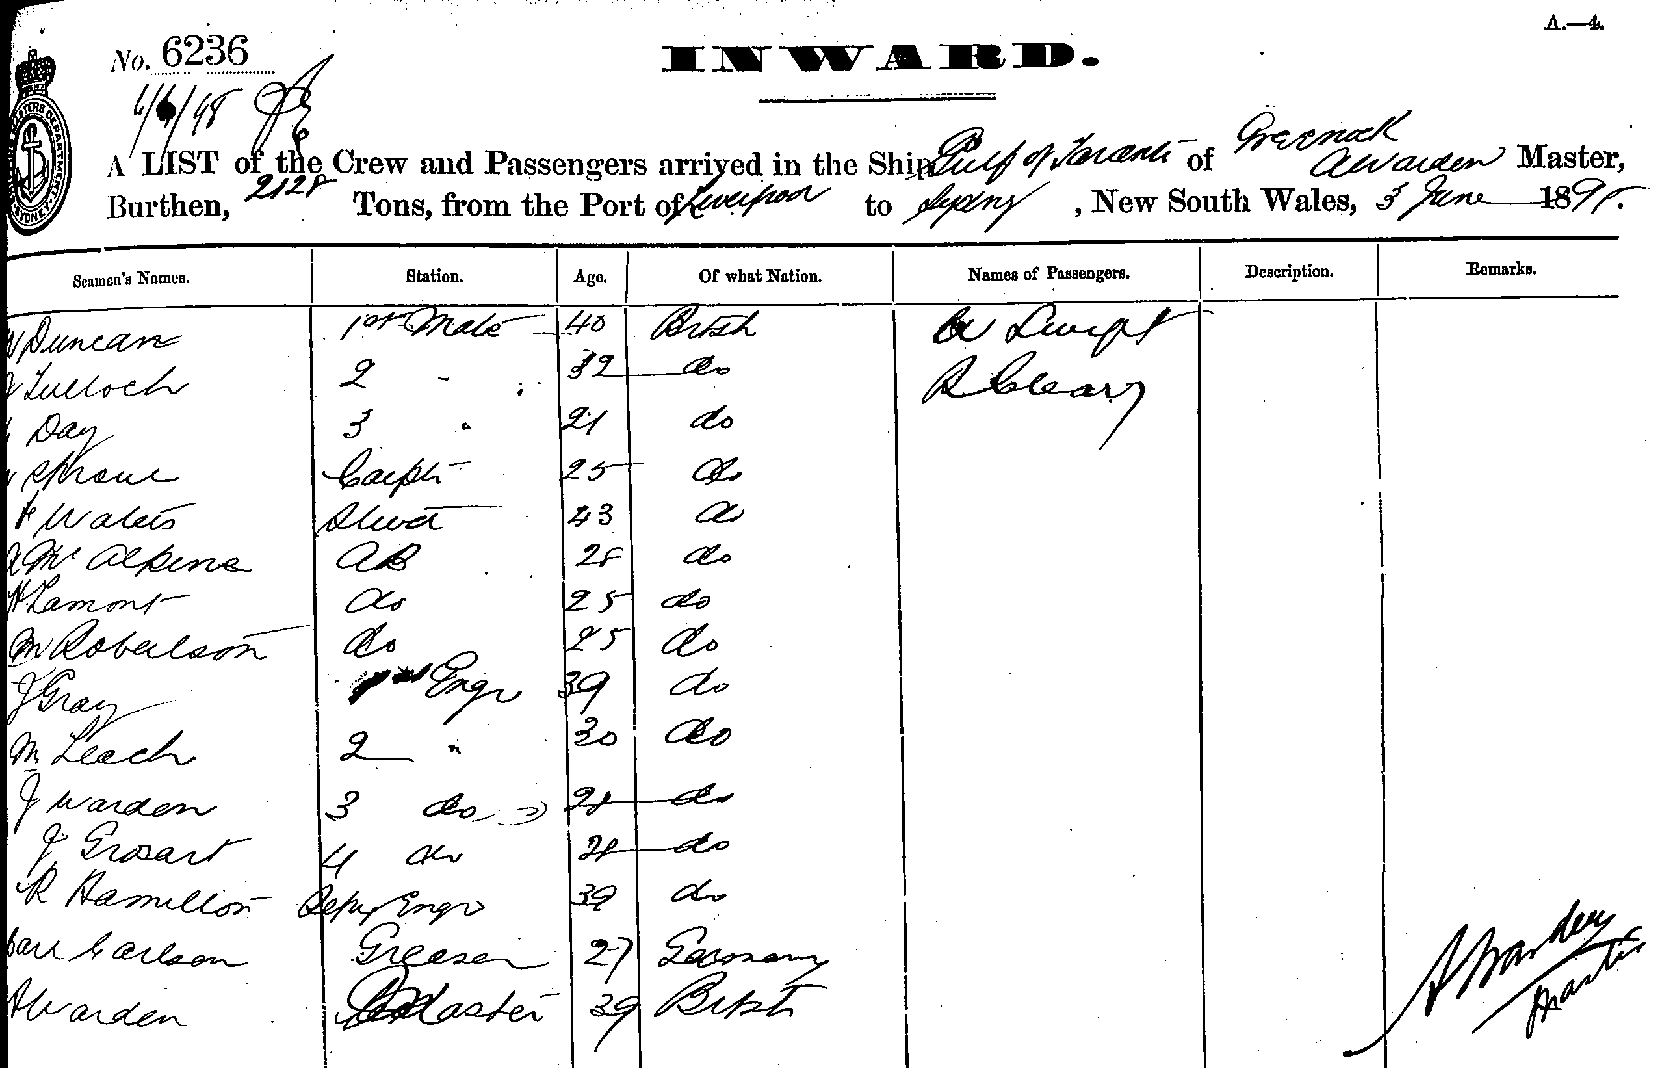 A.—4.
No. 6236
INWARD.
6/6/98
A LIST of the Crew and Passengers arrived in the Ship Gulf of Taranto of Greenock A Warden Master,
Burthen, 2128 Tons, from the Port of Liverpool to Sydney, New South Wales, 3 June 1898.
Seamen's Names. Station. Age. Of what Nation. Names of Passengers. Description. Remarks.
Duncan 1st Mate 40 Britsh W Swift
Tulloch 2 " 32 do R Cleary
Day 3 " 21 do
Sproue Carptr 25 do
Waters Stwd 43 do
Mc Alpine AB 28 do
H Lamont do 25 do
M Robertson do 25 do
J Gray 1st Engr 39 do
M Leach 2 " 30 do
J Warden 3 do 28 do
J Grosart 4 do 28 do
R Hamilton Engr 39 do
Carl Carlson Greaser 27 Germany
A Warden Master 39 Britsh
A Warden
Master